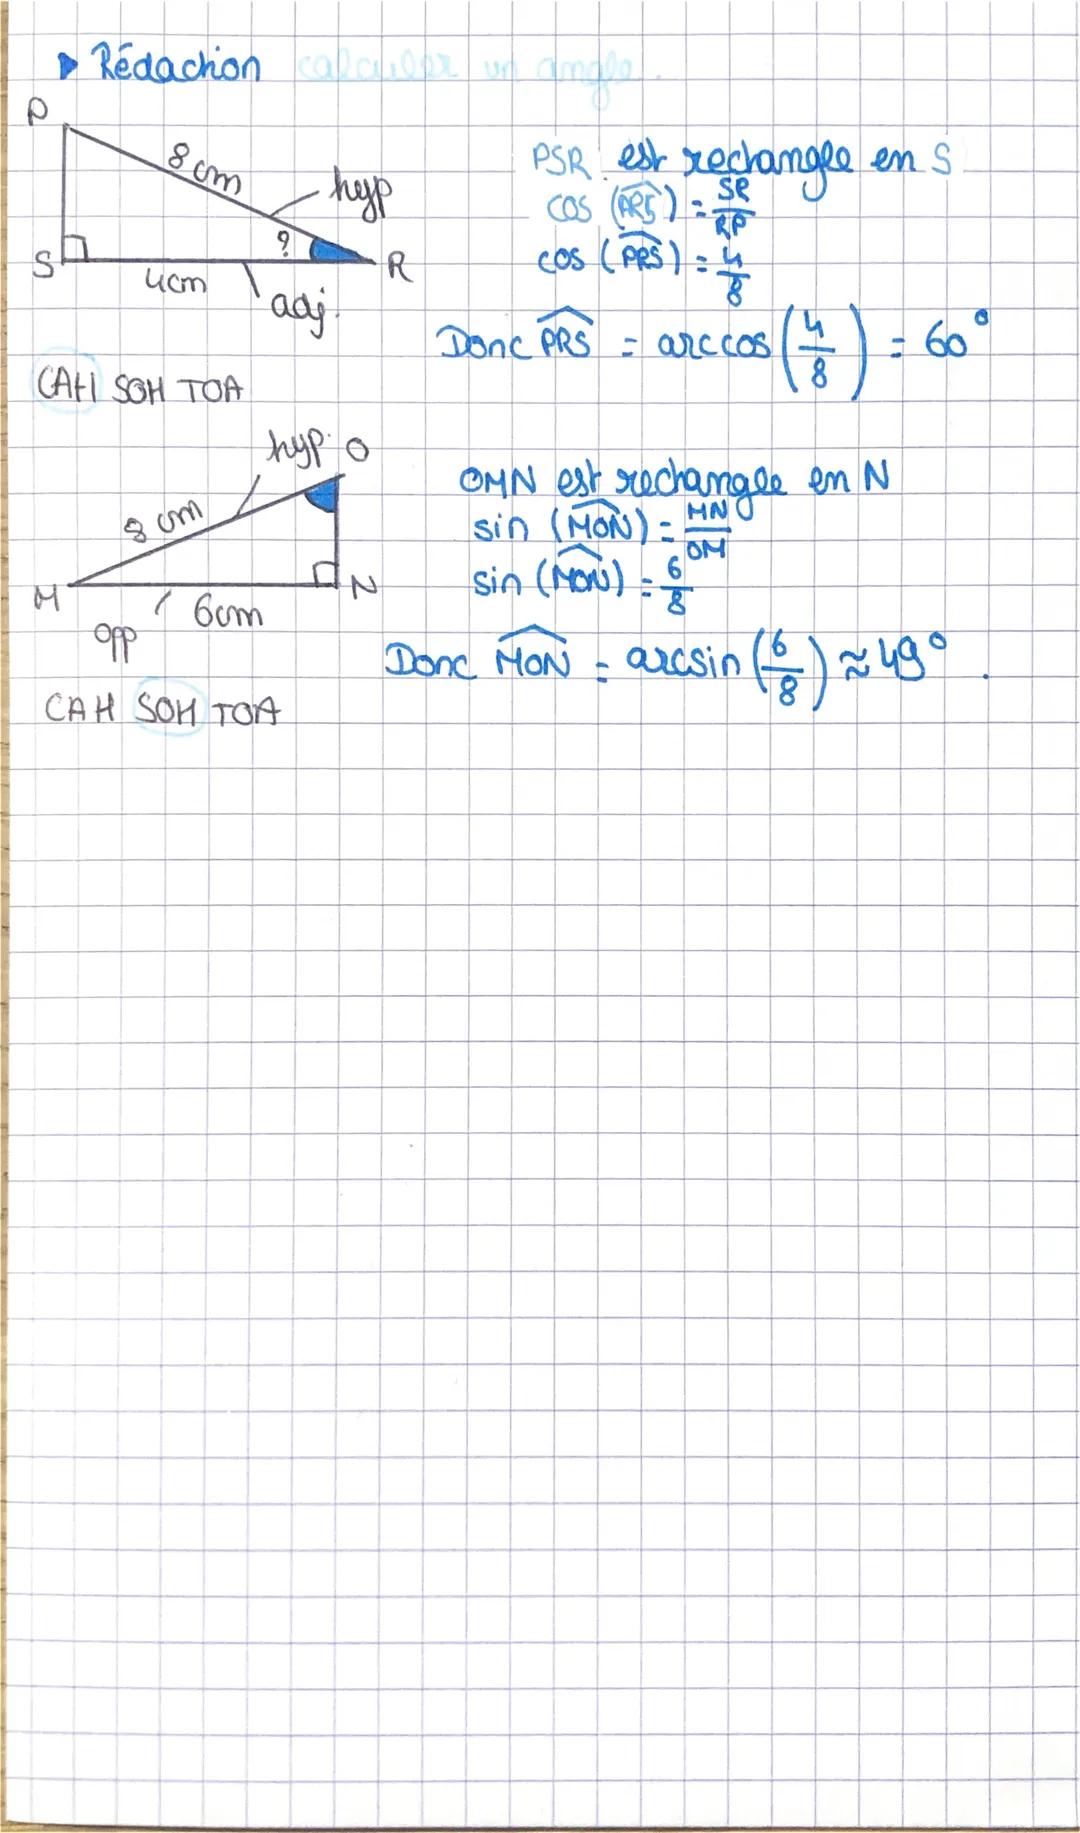 ▶ Rédaction calculer un angle.
P
8 cm
hyp
?
S
R
4cm
adj.
CAH SOH TOA
PSR est rectangle en S
cos (PRS) = SR/RP
cos (PRS) = 4/8
Donc PRS = arccos (4/8) = 60°
hyp. O
8 cm
M
N
6cm
opp
CAH SOH TOA
OMN est rectangle en N
sin (MON) = MN/OM
sin (MON) = 6/8
Donc MON = arcsin (6/8) ≈ 49°.